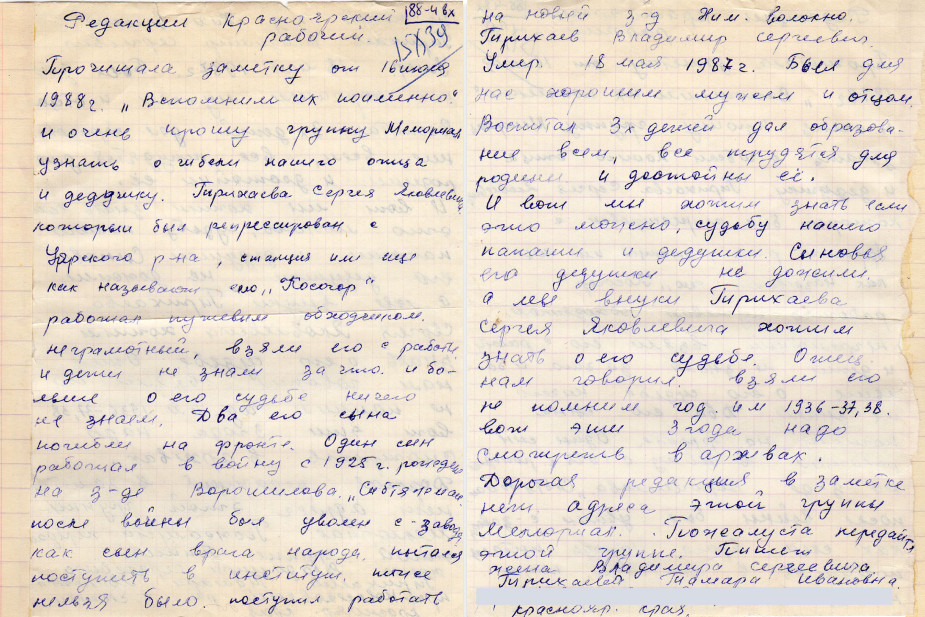 Редакции Красноярский
рабочий.
88-4 вх
15/X 39
Прочитала заметку от 16 июля
1988 г. „Вспомним их поименно."
и очень прошу группу Мемориал
узнать о гибели нашего отца
и дедушку. Пирихаева Сергея Яковлевича
который был репрессирован с
Уярского р-на, станция или еще
как называют его „Косогор"
работал путевым обходчиком.
неграмотный, взяли его с работы
и дети не знали за что. и бо-
льше о его судьбе ничего
не знаем. Два его сына
погибли на фронте. Один сын
работал в войну с 1925 г. рождения
на з-де Ворошилова, „Сибтяжмаш
после войны был уволен с-завода
как сын врага народа. пытался
поступить в институт. тоже
нельзя было. поступил работать
на новый з-д Хим. волокно.
Пирихаев Владимир Сергеевич.
Умер. 18 мая 1987 г. Был для
нас хорошим мужем и отцом.
Воспитал 3х детей дал образова-
ние всем, все трудятся для
родины и достойны её.
И вот мы хотим знать если
это можно, судьбу нашего
папаши и дедушки. Сыновья
его дедушки не дожили.
а мы внуки Пирихаева
Сергея Яковлевича хотим
знать о его судьбе. Отец
нам говорил. взяли его
не помним год. или 1936-37, 38.
вот эти 3 года надо
смотреть в архивах.
Дорогая редакция в заметке
нет адреса этой группы
Мемориал. Пожалуста передайте
этой группе. Пишет
жена Владимира Сергеевича
Пирихаева Тамара Ивановна
Краснояр. края.